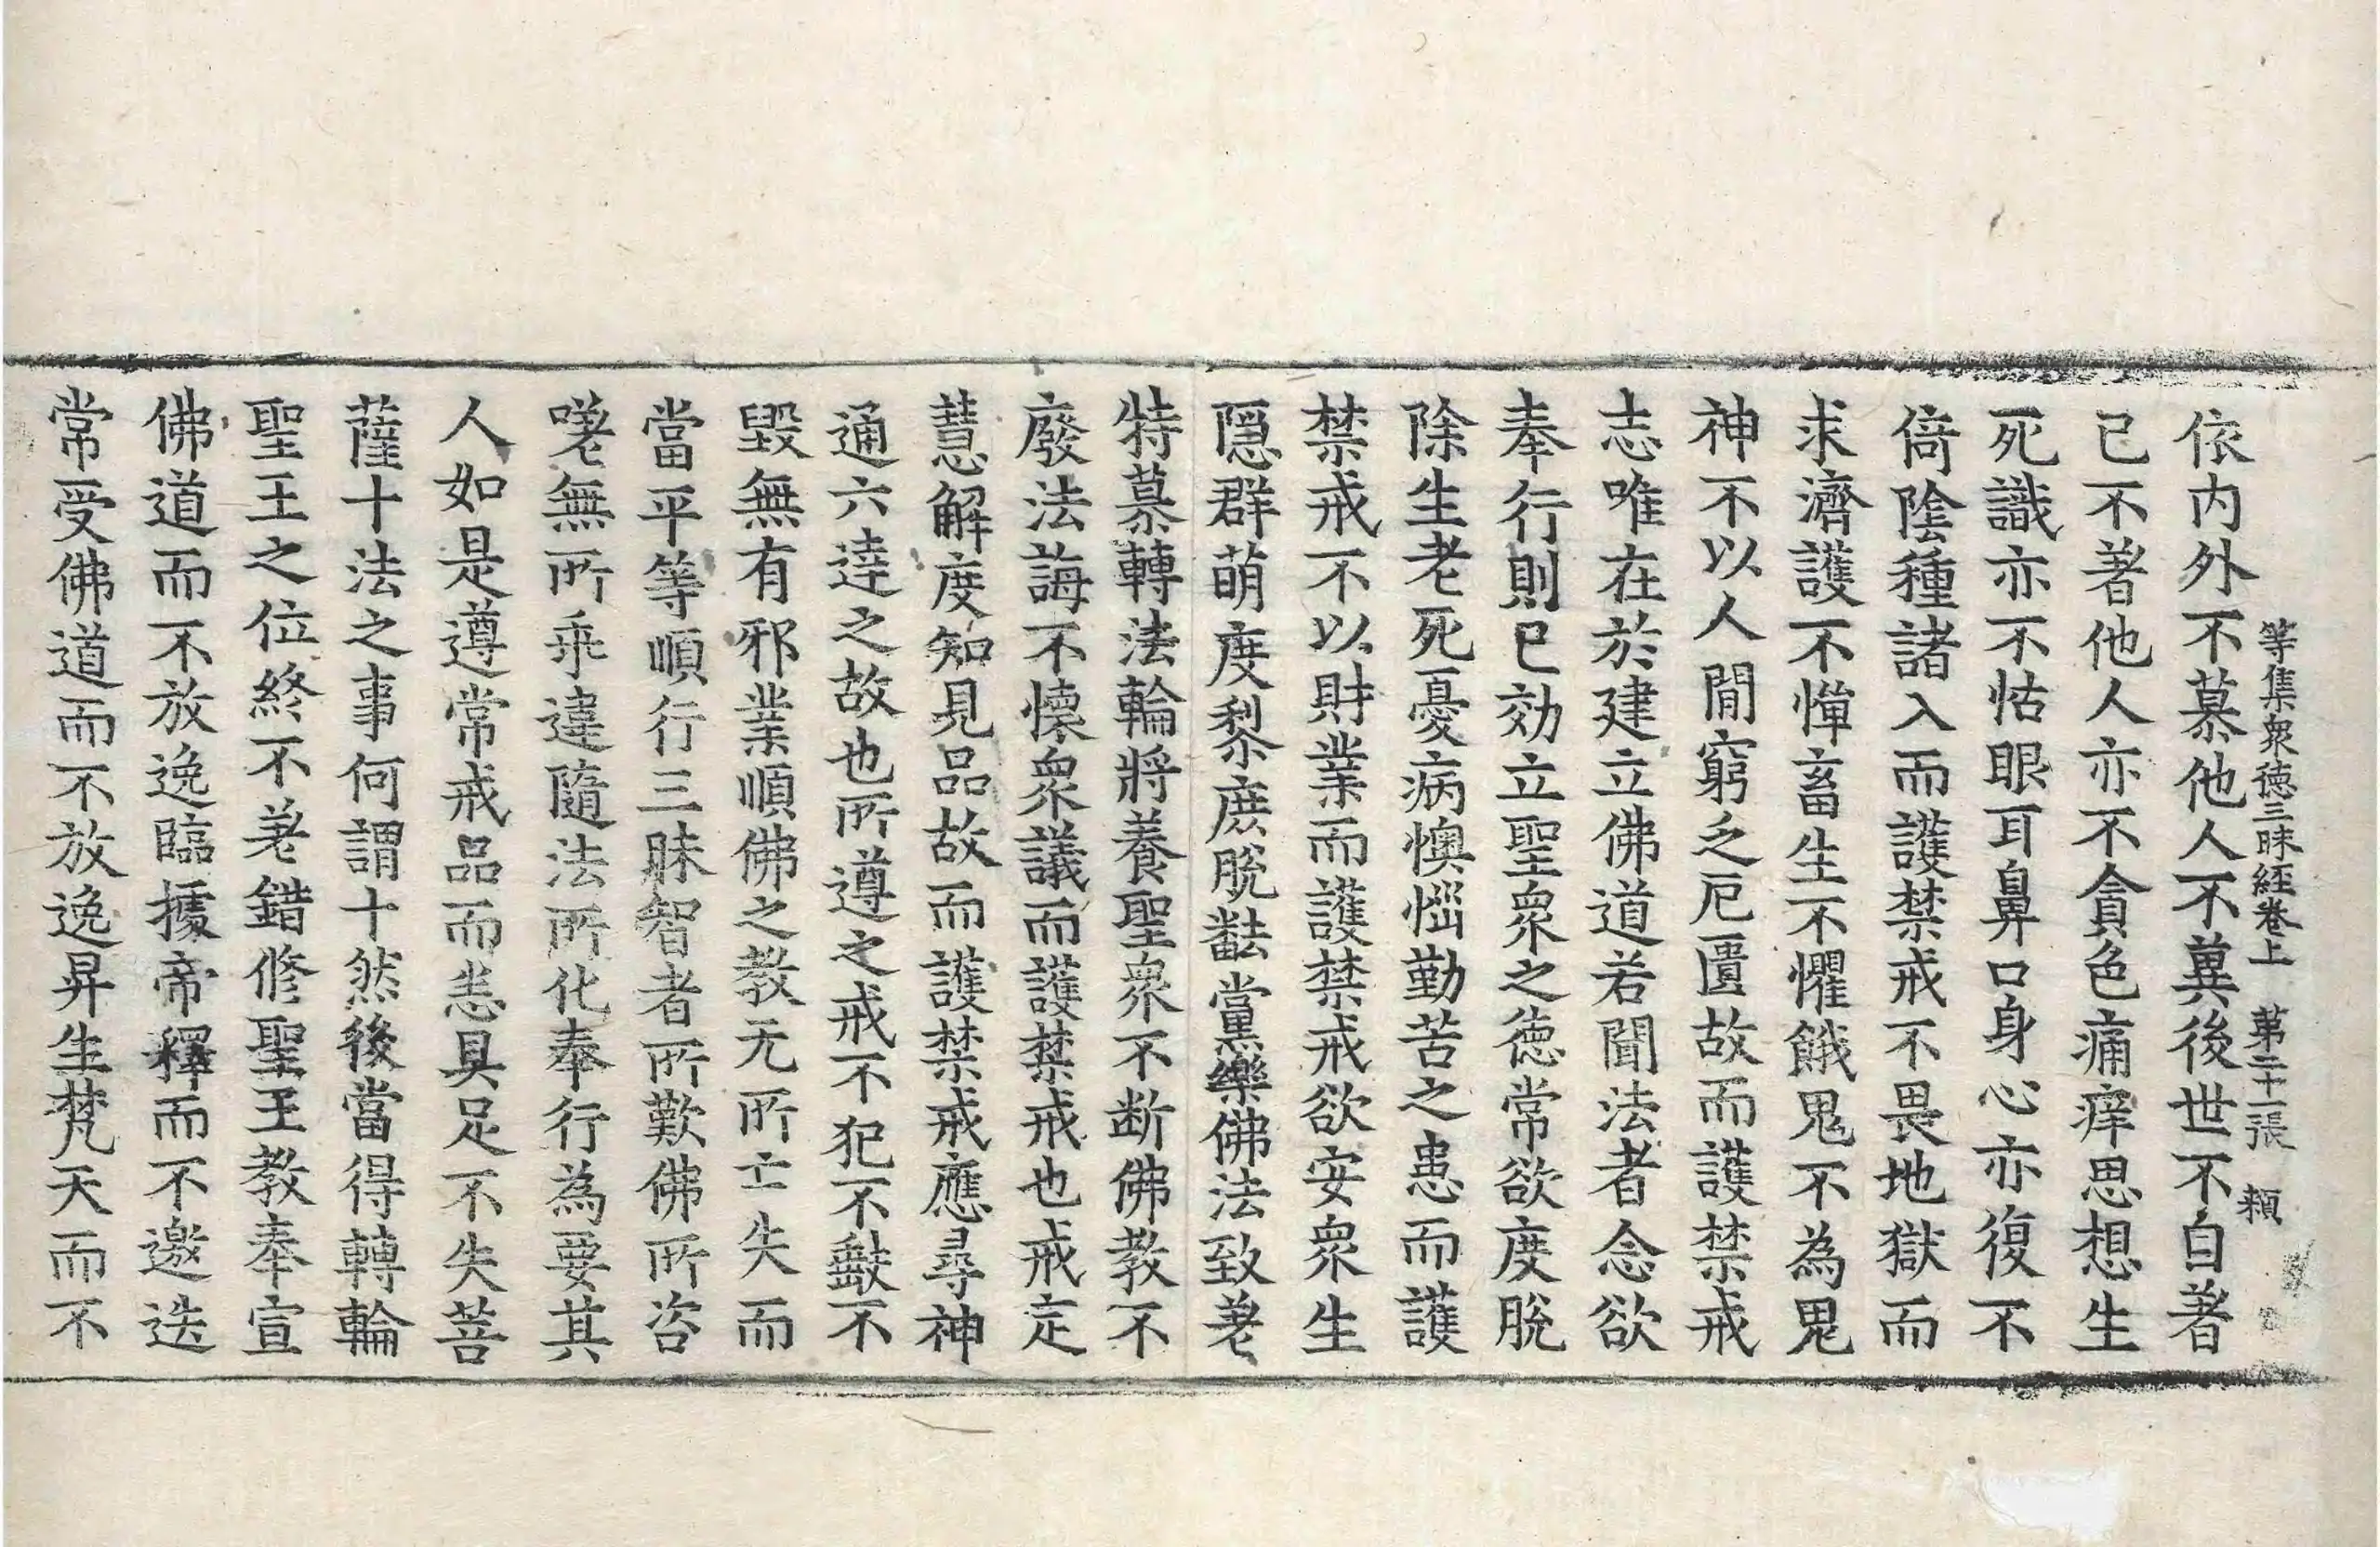 等集衆德三昧經卷上 第二十一張 頼
依内外不慕他人不兾後世不自著
已不著他人亦不貪色痛痒思想生
死識亦不怙眼耳鼻口身心亦復不
倚陰種諸入而護禁戒不畏地獄而
求濟護不憚畜生不懼餓鬼不為鬼
神不以人閒窮乏厄匱故而護禁戒
志唯在於建立佛道若聞法者念欲
奉行則已効立聖衆之德常欲度脫
除生老死憂病懊惱勤苦之患而護
禁戒不以財業而護禁戒欲安衆生
隱群萌度黎庶脫黜黨樂佛法致老
特慕轉法輪將養聖衆不断佛教不
廢法誨不懷衆議而護禁戒也戒定
慧解度知見品故而護禁戒應尋神
通六達之故也所遵之戒不犯不𪔂不
毀無有邪業順佛之教无所亡失而
當平等順行三昧智者所歎佛所咨
嗟無所乖違隨法所化奉行為要其
人如是遵常戒品而恚具足不失菩
薩十法之事何謂十然後當得轉輪
聖王之位終不差錯修聖王教奉宣
佛道而不放逸臨據帝釋而不邀迭
常受佛道而不放逸昇生梵天而不